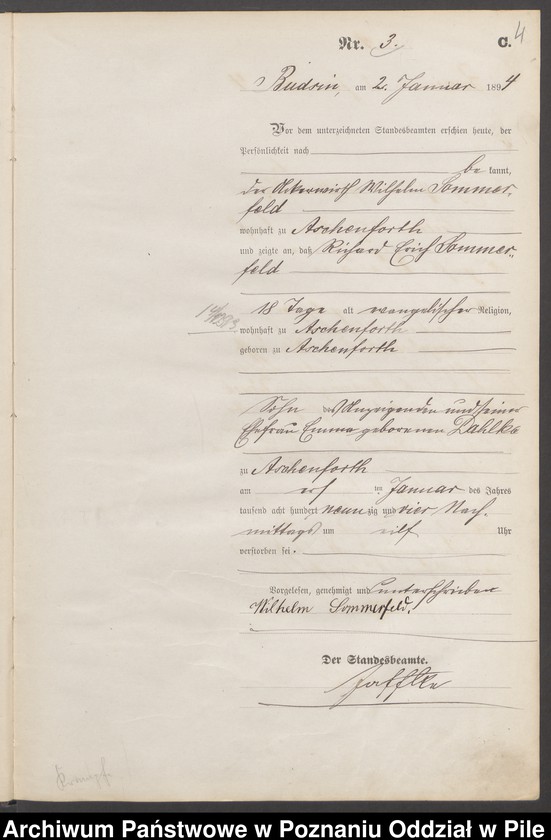 4
Nr. 3. C.
Budsin, am 2. Januar 1894
Vor dem unterzeichneten Standesbeamten erschien heute, der
Persönlichkeit nach
be kannt,
der Ackerwirth Wilhelm Sommer-
feld
wohnhaft zu Aschenforth
und zeigte an, daß Richard Erich Sommer-
feld
18 Tage alt evangelischer Religion,
wohnhaft zu Aschenforth
geboren zu Aschenforth
Sohn des Anzeigenden und seiner
Ehefrau Emma geborenen Dahlke
zu Aschenforth
am ersten Januar des Jahres
tausend acht hundert neunzig und vier Nach-
mittags um eilf Uhr
verstorben sei.
Vorgelesen, genehmigt und unterschrieben
Wilhelm Sommerfeld.
Der Standesbeamte.
Krampf.
Archiwum Państwowe w Poznaniu Oddział w Pile